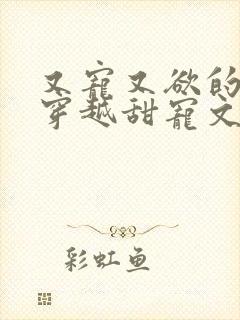 又寵又欲的
穿越甜寵文
彩虹鱼